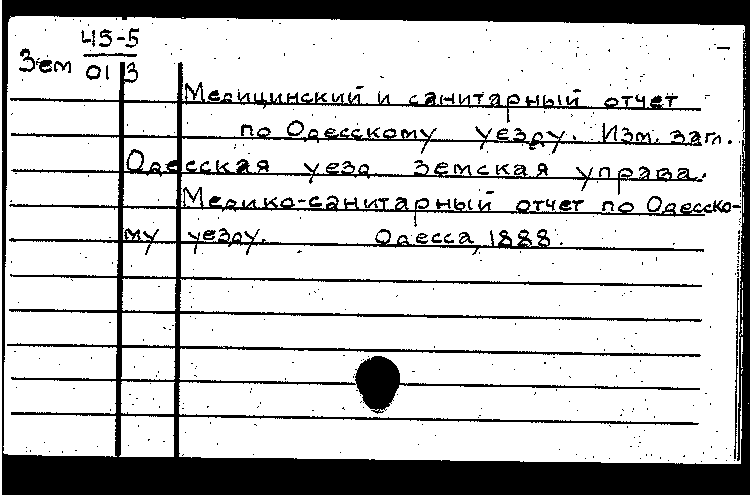 45-5
Зем 01 3
Медицинский и санитарный отчет
по Одесскому уезду. Изм. загл.
Одесская уезд земская управа.
Медико-санитарный отчет по Одесско-
му уезду. Одесса, 1888.